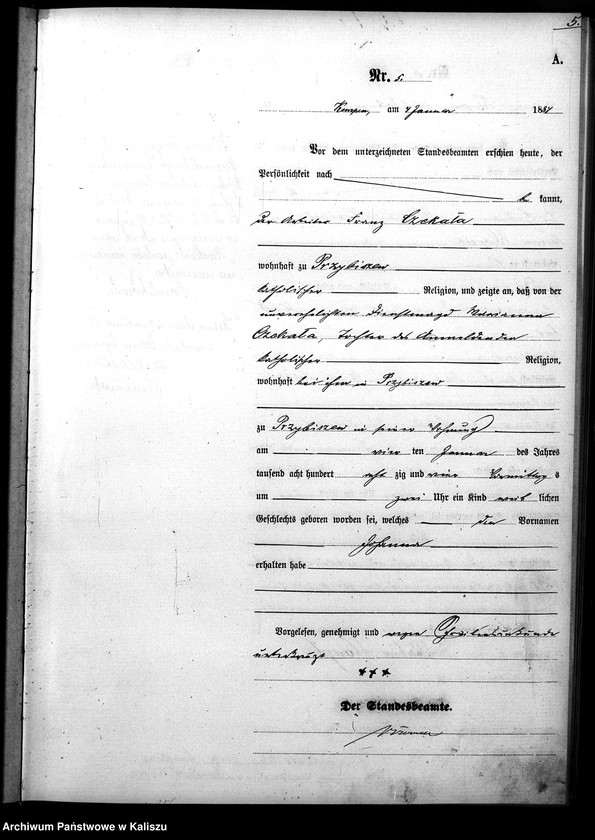 5.
A.
Nr. 5.
Kempen, am 4 Januar 1884
Vor dem unterzeichneten Standesbeamten erschien heute, der
Persönlichkeit nach
be kannt,
der Arbeiter Franz Czekała
wohnhaft zu Przybiszew
katholischer Religion, und zeigte an, daß von der
unverehelichten Dienstmagd Marianna
Czekała, Tochter des Anmeldenden
katholischer Religion,
wohnhaft bei ihm in Przybiszew
zu Przybiszew in seiner Wohnung
am vier ten Januar des Jahres
tausend acht hundert acht zig und vier Vormittag s
um zwei Uhr ein Kind weib lichen
Geschlechts geboren worden sei, welches den Vornamen
Johanna
erhalten habe
Vorgelesen, genehmigt und wegen Schreibensunkunde
unterkreuzt
+++
Der Standesbeamte.
Archiwum Państwowe w Kaliszu